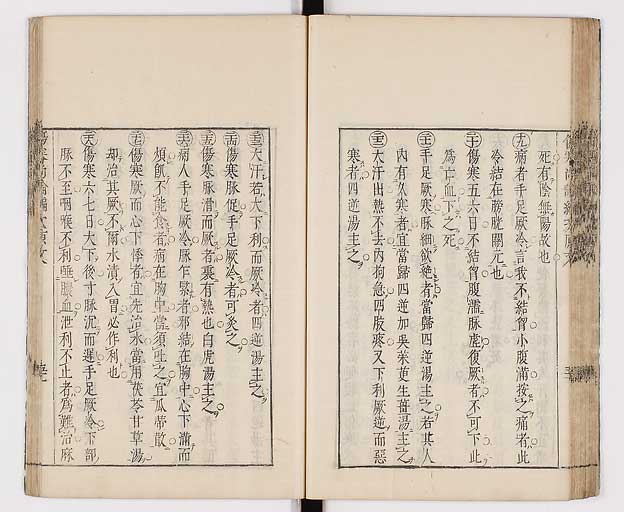 死有陰無陽故也
十九 病者手足厥冷言我不結胷小腹滿按之痛者此
冷結在膀胱關元也
二十 傷寒五六日不結胷腹濡脉虛復厥者不可下此
爲亡血下之死
二十一 手足厥寒脉細欲絕者當歸四逆湯主之若其人
內有久寒者宜當歸四逆加吳茱萸生薑湯主之
二十二 大汗出熱不去內拘急四肢疼又下利厥逆而惡
寒者四逆湯主之
二十三 大汗若大下利而厥冷者四逆湯主之
二十四 傷寒脉促手足厥冷者可灸之
二十五 傷寒脉滑而厥者裏有熱也白虎湯主之
二十六 病人手足厥冷脉乍緊者邪結在胸中心下滿而
煩飢不能食者病在胸中當須吐之宜瓜蒂散
二十七 傷寒厥而心下悸者宜先治水當用茯苓甘草湯
却治其厥不爾水漬入胃必作利也
二十八 傷寒六七日大下後寸脉沉而遲手足厥冷下部
脉不至咽喉不利唾膿血泄利不止者爲難治麻